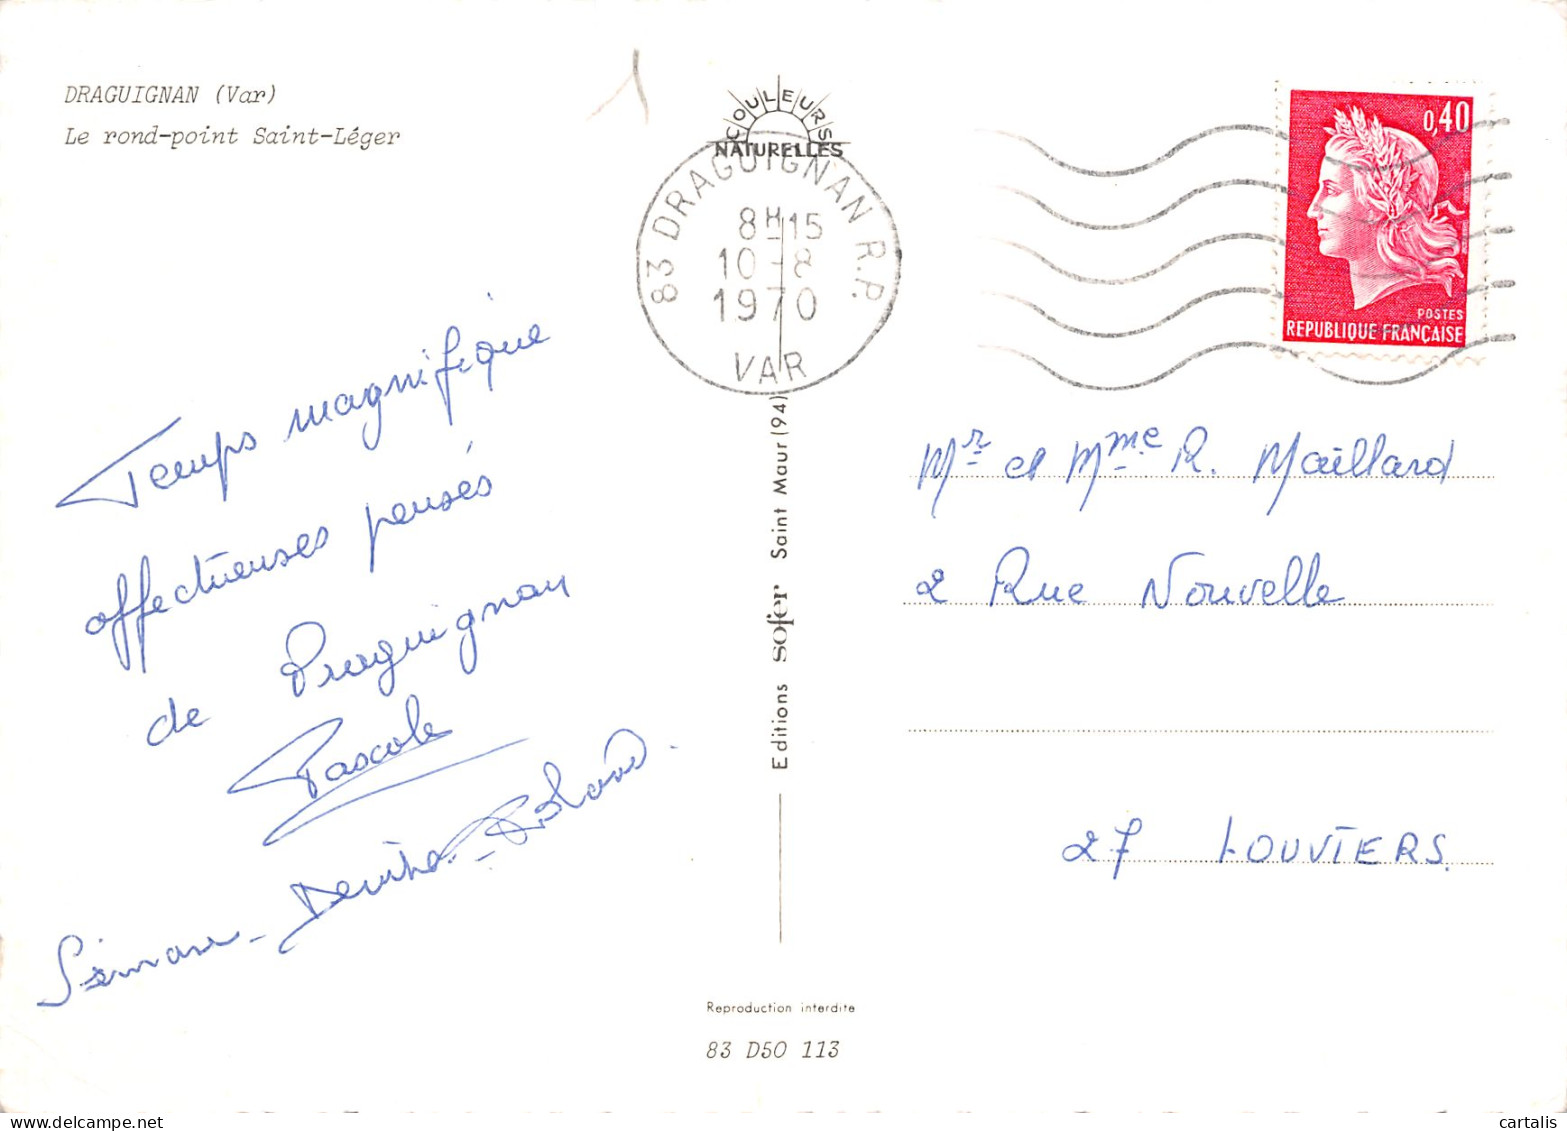 DRAGUIGNAN (Var)
Le rond-point Saint-Léger
COULEURS
NATURELLES
83 DRAGUIGNAN R.P.
8H15
10-8
1970
VAR
0,40
POSTES
REPUBLIQUE FRANÇAISE
Temps magnifique
affectueuses pensés
de Draguignan
Pascale
Editions sofer Saint Maur (94)
Mr et Mme R. Maillard
2 Rue Nouvelle
27 LOUVIERS.
Reproduction interdite
83 D50 113
cartalis